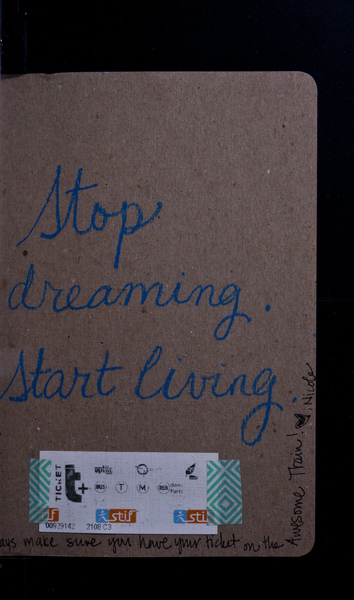 Stop
dreaming.
Start living.
TICKET
t+
optile
BUS T M RER
dans Paris
stif stif
00939142 2108 C3
ays make sure you have your ticket on the
Awesome Train! ♥, Nicole